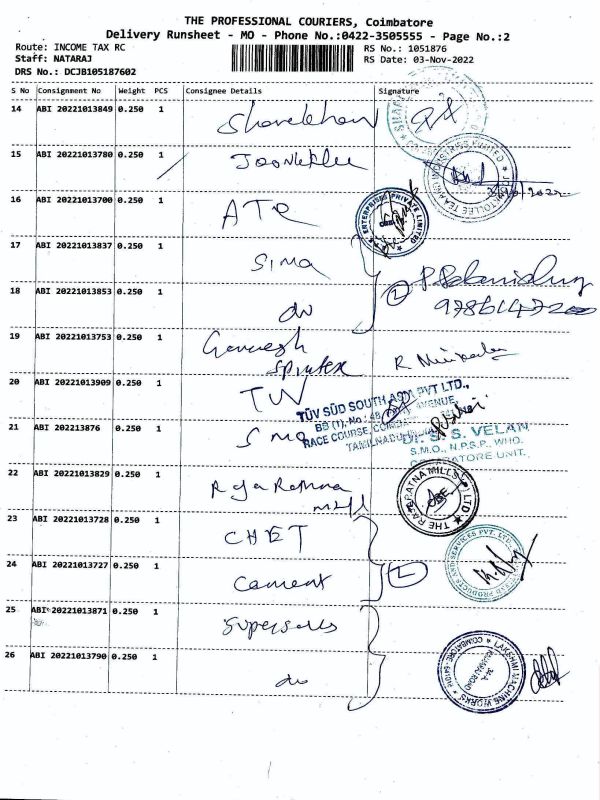 THE PROFESSIONAL COURIERS, Coimbatore
Delivery Runsheet - MO - Phone No.:0422-3505555 - Page No.:2
Route: INCOME TAX RC
RS No.: 1051876
Staff: NATARAJ
RS Date: 03-Nov-2022
DRS No.: DCJB105187602
S No Consignment No Weight PCS Consignee Details Signature
14 ABI 20221013849 0.250 1 Sharekhan
15 ABI 20221013780 0.250 1
JOONKTOLLEE TEA AND INDUSTRIES LIMITED
16 ABI 20221013700 0.250 1 ATR
ENTERPRISES PRIVATE LIMITED
17 ABI 20221013837 0.250 1 SIMA
18 ABI 20221013853 0.250 1 do
2
19 ABI 20221013753 0.250 1 Ganesh
Spintex
20 ABI 20221013909 0.250 1 TUV
TÜV SÜD SOUTH ASIA PVT LTD.,
AVENUE,
RACE COURSE,
TAMILNADU
21 ABI 202213876 0.250 1 SMO
Dr. S. S. VELAN
S.M.O., N.P.S.P., WHO.
COIMBATORE UNIT.
22 ABI 20221013829 0.250 1 Raja Ratnna
mill
THE RAJARATNA MILLS LTD
23 ABI 20221013728 0.250 1 CHET
24 ABI 20221013727 0.250 1 Cament
2
PRODUCTS AND SERVICES PVT. LTD.
25 ABI 20221013871 0.250 1 Supersales
26 ABI 20221013790 0.250 1 do
LAKSHMI MACHINE WORKS
34-A
COIMBATORE